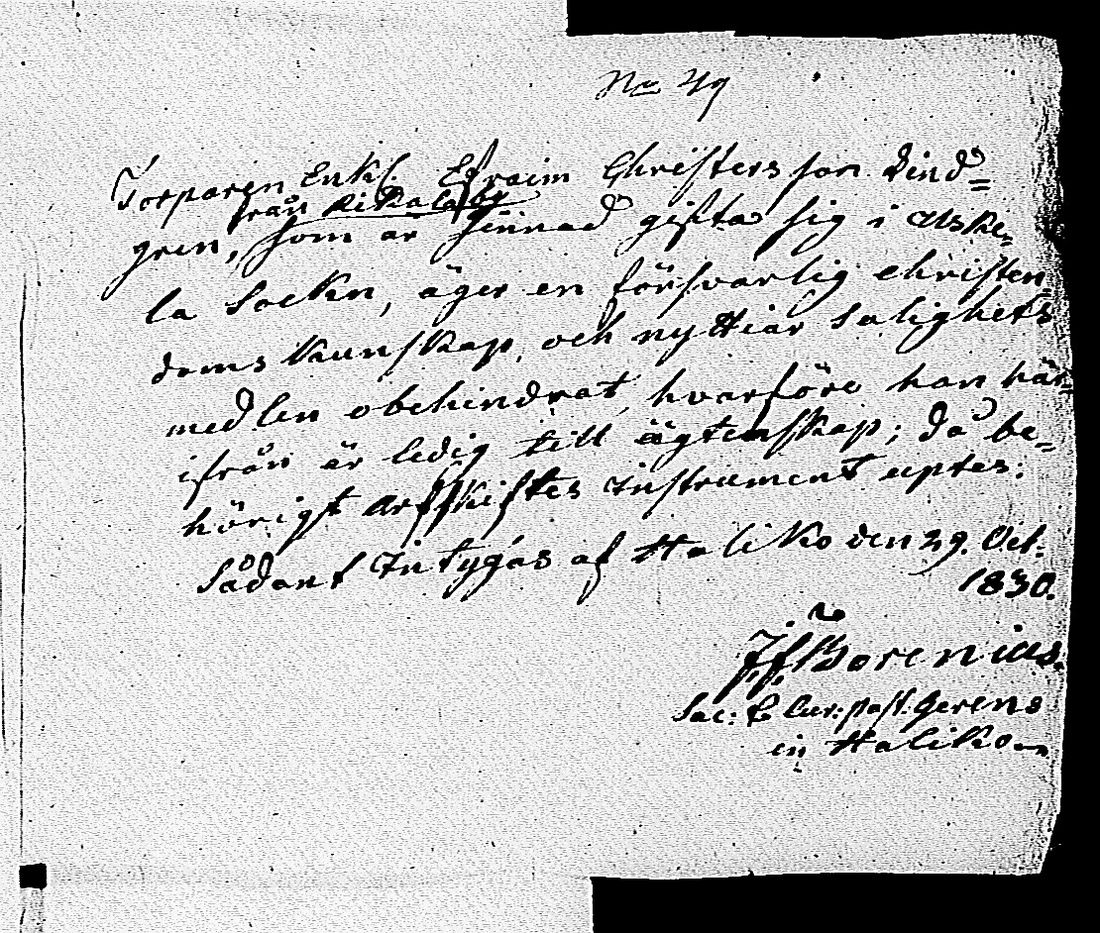 No 49
Torparen Enkl. Efraim Christersson Lind=
från Rikala by
gren, som är sinnad gifta sig i Uske=
la Sockn, äger en försvarlig christen=
doms kunskap, och nyttjar salighets
medlen obehindrat, hvarföre han här=
ifrån är ledig till ägtenskap; då be=
hörigt arfskiftes Instrument uptes:
Sådant Intygas af Haliko den 29. Oct:
1830.
J. F. Borenius.
Sac: & Cur: past: Gerens
in Haliko